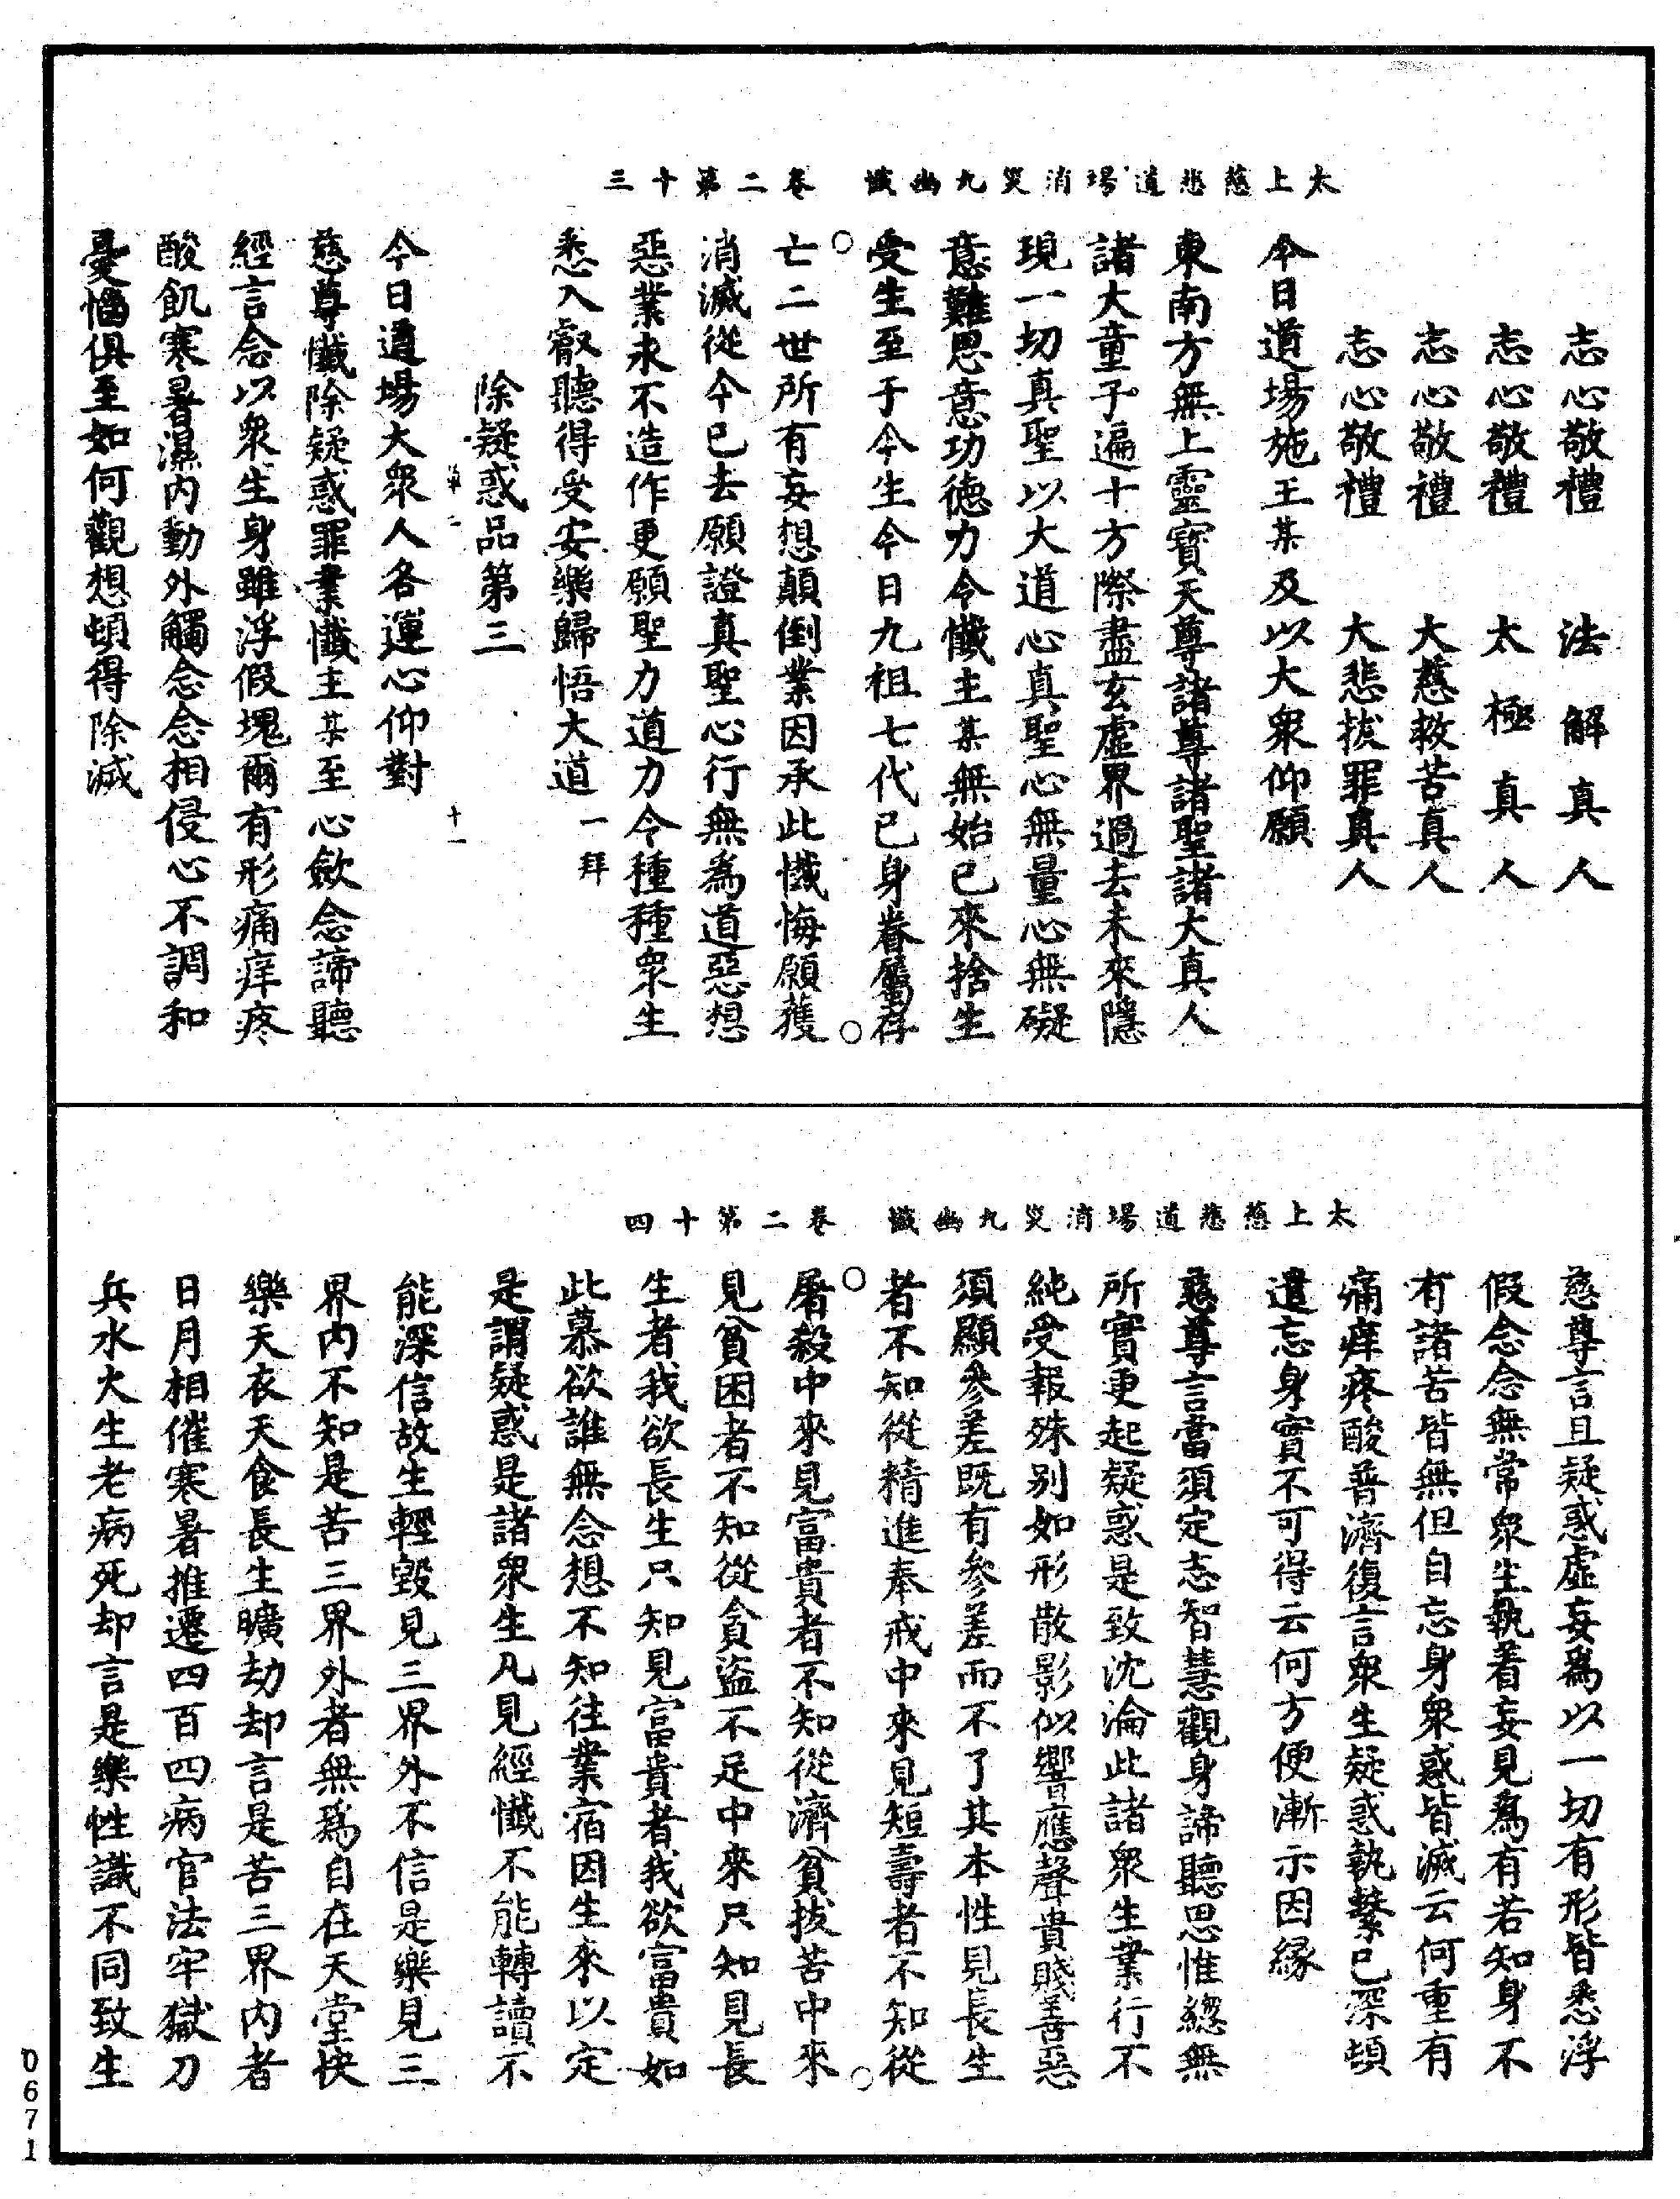 太上慈悲道場消災九幽懺　卷二第十三
志心敬禮　法解真人
志心敬禮　太極真人
志心敬禮　大慈救苦真人
志心敬禮　大悲拔罪真人
今日道場施王某及以大衆仰願
東南方無上靈寳天尊諸尊諸聖諸大真人
諸大童子遍十方際盡玄虛界過去未來隱
現一切真聖以大道心真聖心無量心無礙
意難思意功德力令懺主某無始已來捨生
受生至于今生今日九祖七代已身眷屬存
亡二世所有妄想顛倒業因承此懺悔願獲
消滅從今已去願證真聖心行無爲道惡想
惡業永不造作更願聖力道力令種種衆生
悉入叡聽得受安樂歸悟大道 一拜
除疑惑品第三
十一
今日道場大衆人各運心仰對
慈尊懺除疑惑罪業懺主某至心斂念諦聽
經言念以衆生身雖浮假塊爾有形痛痒疼
酸飢寒暑濕内動外觸念念相侵心不調和
憂惱俱至如何觀想頓得除滅
太上慈悲道場消災九幽懺　卷二第十四
慈尊言且疑惑虛妄爲以一切有形皆悉浮
假念念無常衆生執着妄見爲有若知身不
有諸苦皆無但自忘身衆惑皆滅云何重有
痛痒疼酸普濟復言衆生疑惑執繫已深頓
遣忘身實不可得云何方便漸示因緣
慈尊言當須定志智慧觀身諦聽思惟緫無
所實更起疑惑是致沈淪此諸衆生業行不
純受報殊别如形散影似響應聲貴賤善惡
須顯參差既有參差而不了其本性見長生
者不知從精進奉戒中來見短壽者不知從
屠殺中來見富貴者不知從濟貧拔苦中來
見貧困者不知從貪盜不足中來只知見長
生者我欲長生只知見富貴者我欲富貴如
此慕欲誰無念想不知往業宿因生來以定
是謂疑惑是諸衆生凡見經懺不能轉讀不
能深信故生輕毀見三界外不信是樂見三
界内不知是苦三界外者無爲自在天堂快
樂天衣天食長生曠劫却言是苦三界内者
日月相催寒暑推遷四百四病官法牢獄刀
兵水火生老病死却言是樂性識不同致生
0671